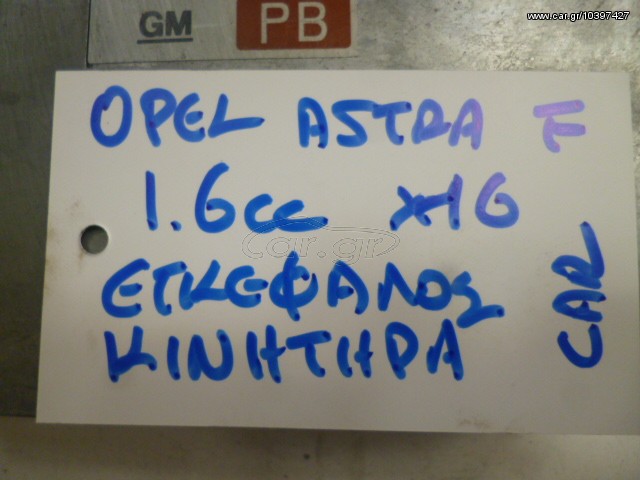 www.car.gr/10397427
GM PB
OPEL ASTRA F
1.6cc X16
car.gr
ΕΓΚΕΦΑΛΟΣ
ΚΙΝΗΤΗΡΑ
CAR